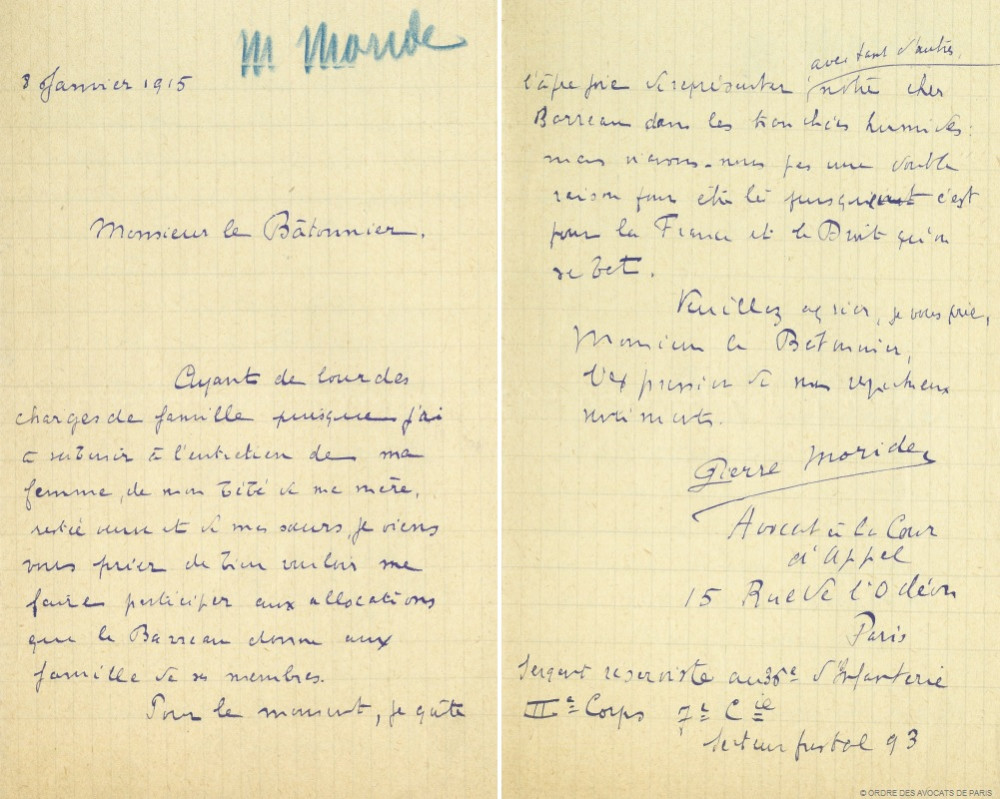 M Monde
8 Janvier 1915
Monsieur le Bâtonnier,
Ayant de lourdes
charges de famille puisque j'ai
à subvenir à l'entretien de ma
femme, de mon bébé de ma mère,
restée veuve et de mes sœurs, je viens
vous prier de bien vouloir me
faire participer aux allocations
que le Barreau donne aux
famille de ses membres.
Pour le moment, je goûte
l'âpre joie de représenter avec tant d'autres, notre cher
Barreau dans les tranchées humides :
mais n'avons-nous pas une double
raison pour être là puisque c'est
pour la France et le Droit qu'on
se bat.
Veuillez agréer, je vous prie,
Monsieur le Bâtonnier,
l'expression de mes respectueux
sentiments.
Pierre Moride
Avocat à la Cour
d'Appel
15 Rue de l'Odéon
Paris
Sergent reserviste au 36e d'Infanterie
IIIe Corps 7e Cie
Secteur postal 93
© ORDRE DES AVOCATS DE PARIS